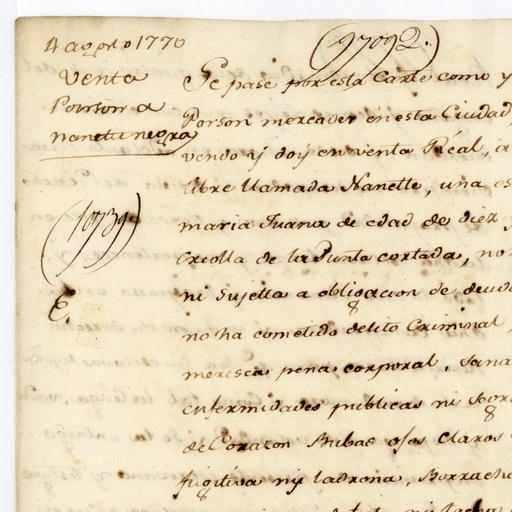 4 agosto 1770
(97092.)
Venta
Poirson a
naneta negra
(10739)
E,
Se pase por esta Carta como y
Porson mercader en esta Ciudad,
vendo y doy en venta Réal, a
libre llamada Nanette, una es
maria Juana de edad de diez
Creolla de la Punta cortada, no
ni Sujetta a obligacion de deuda
no ha cometido delito Criminal,
meresca pena corporal, sana
enfermidades publicas ni secre
de Corazon Bubas ojos Claros
fugitiva ny ladrona, Borracha